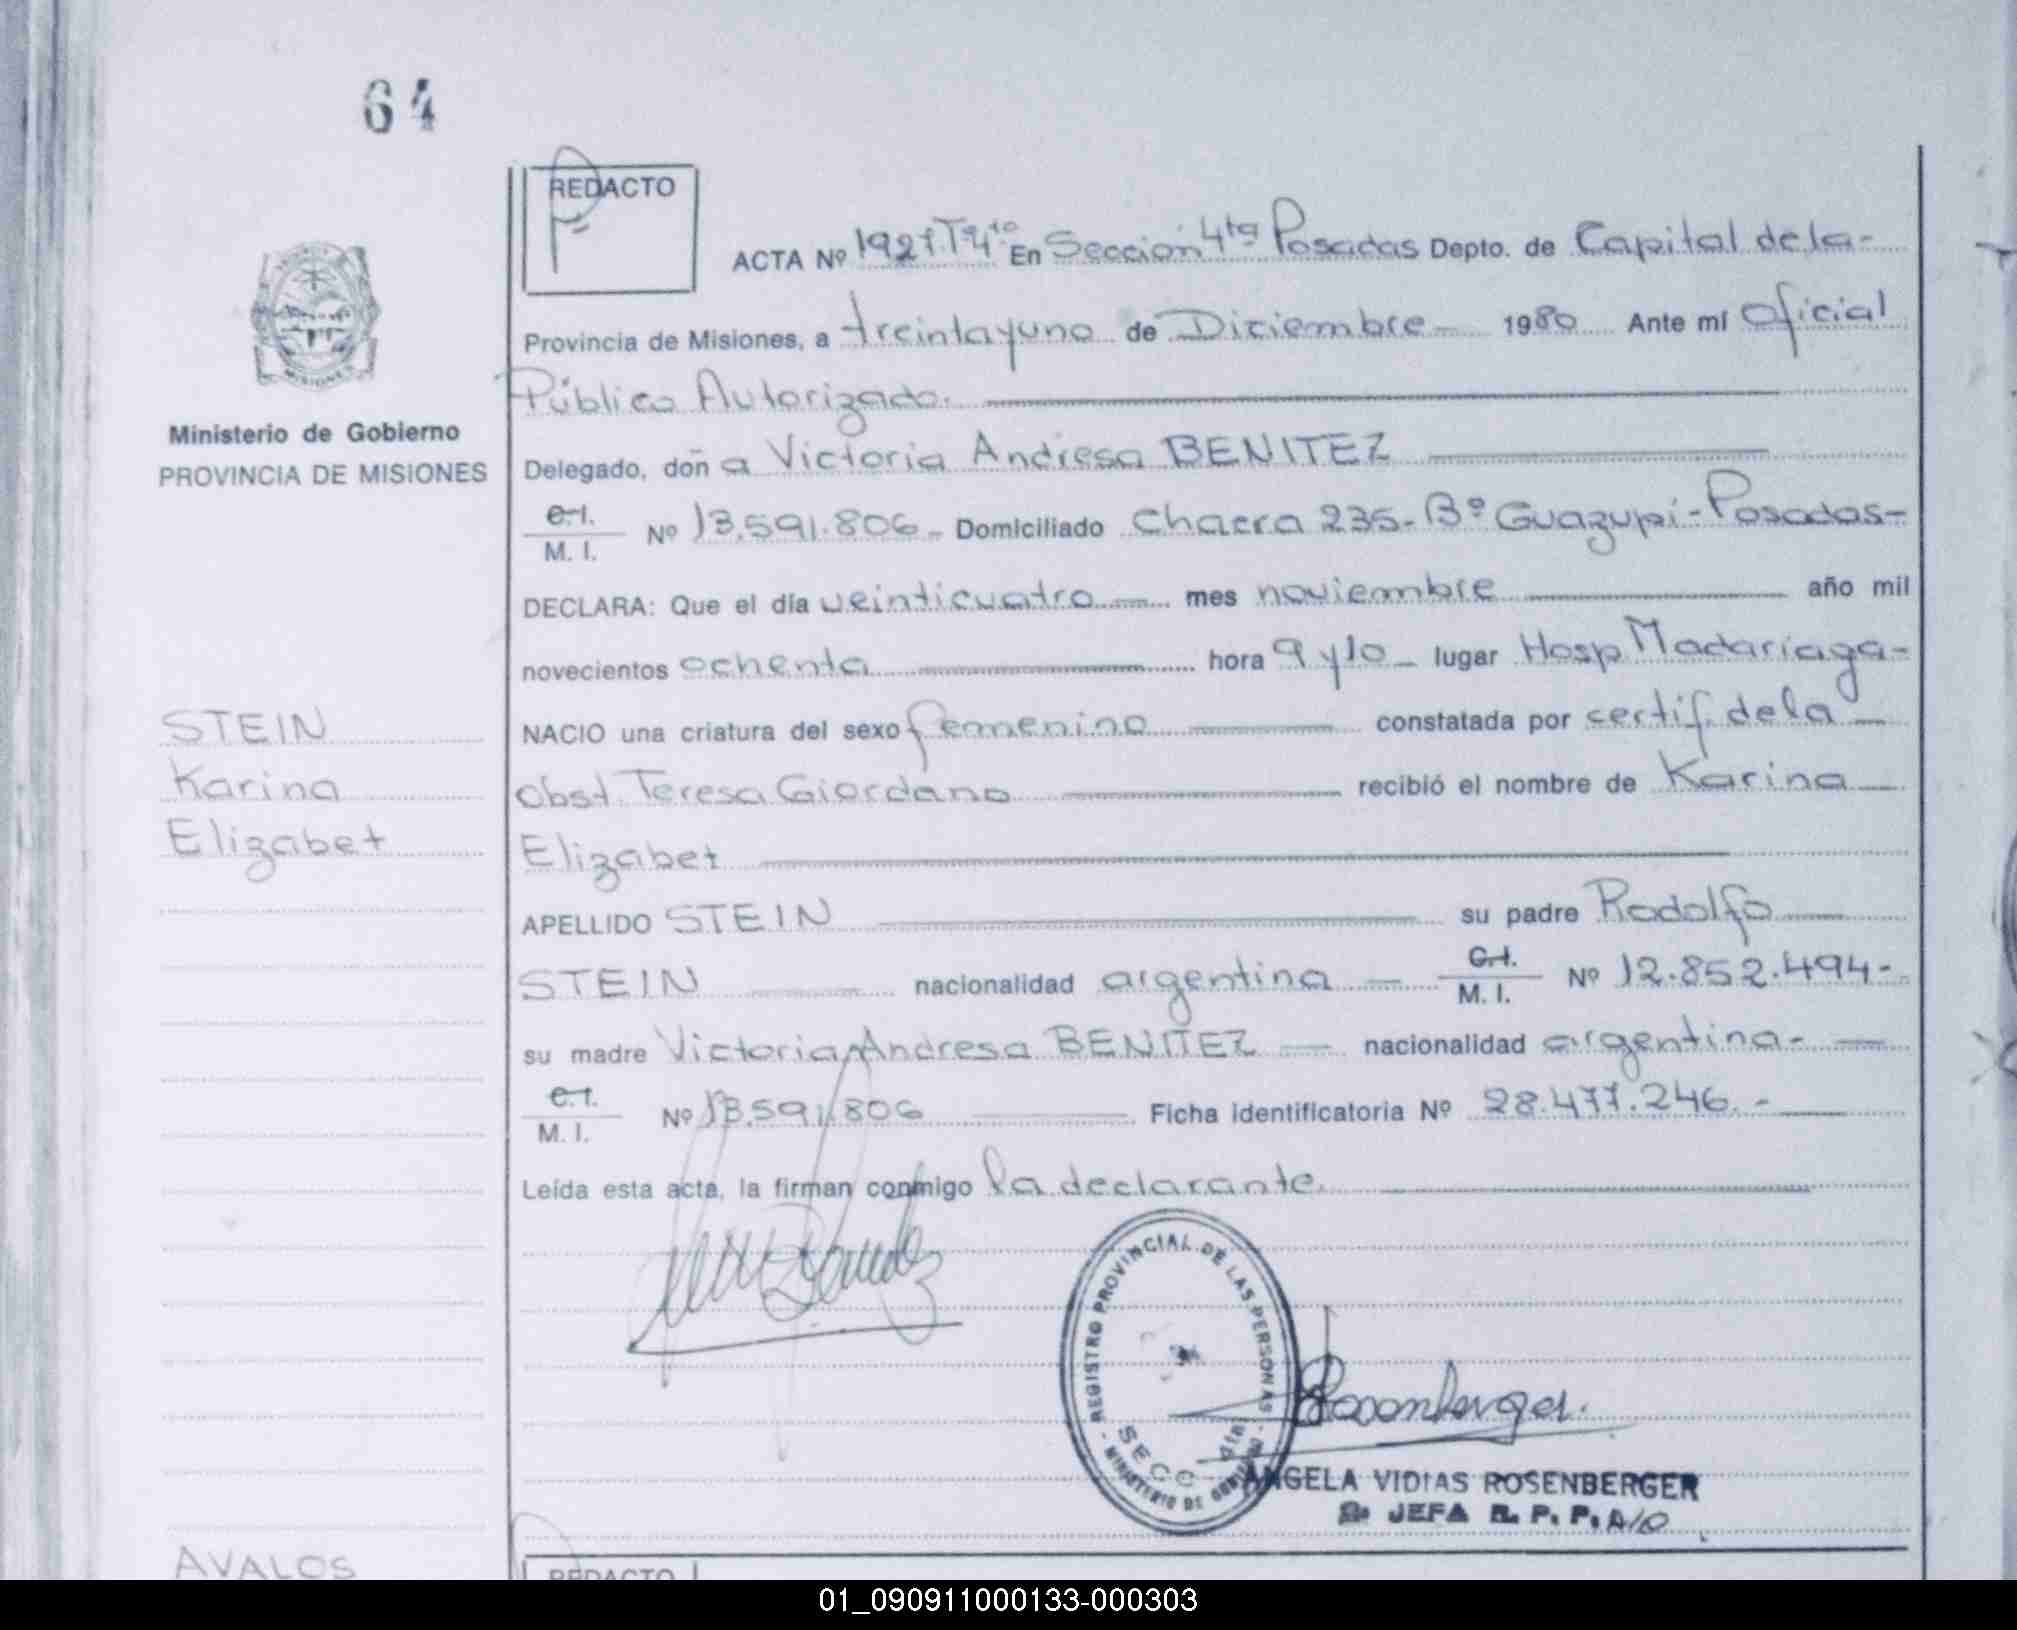 64
REDACTO
ACTA Nº 1927 Tº 4to En Sección 4ta Posadas Depto. de Capital de la-
Provincia de Misiones, a treinta y uno de Diciembre 1980 Ante mí Oficial
Público Autorizado.
Ministerio de Gobierno
PROVINCIA DE MISIONES
MISIONES
Delegado, doña Victoria Andresa BENITEZ
C.I.
M. I. Nº 13.591.806- Domiciliado Chacra 235- Bº Guazupi- Posadas-
DECLARA: Que el día veinticuatro mes noviembre año mil
novecientos ochenta hora 9 y 10 lugar Hosp Madariaga-
NACIO una criatura del sexo femenino constatada por certif. de la
obst. Teresa Giordano recibió el nombre de Karina
Elizabet
STEIN
Karina
Elizabet
APELLIDO STEIN su padre Rodolfo
STEIN nacionalidad argentina C.I.
M. I. Nº 12.852.494-
su madre Victoria Andresa BENITEZ nacionalidad argentina-
C.I.
M. I. Nº 13.591.806 Ficha identificatoria Nº 28.477.246.-
Leída esta acta, la firman conmigo la declarante.
REGISTRO PROVINCIAL DE LAS PERSONAS
MINISTERIO DE GOBIERNO
SECC 4ta
Rosenberger.
ANGELA VIDIAS ROSENBERGER
2ª JEFA R. P. P. A/C
AVALOS
REDACTO
01_090911000133-000303